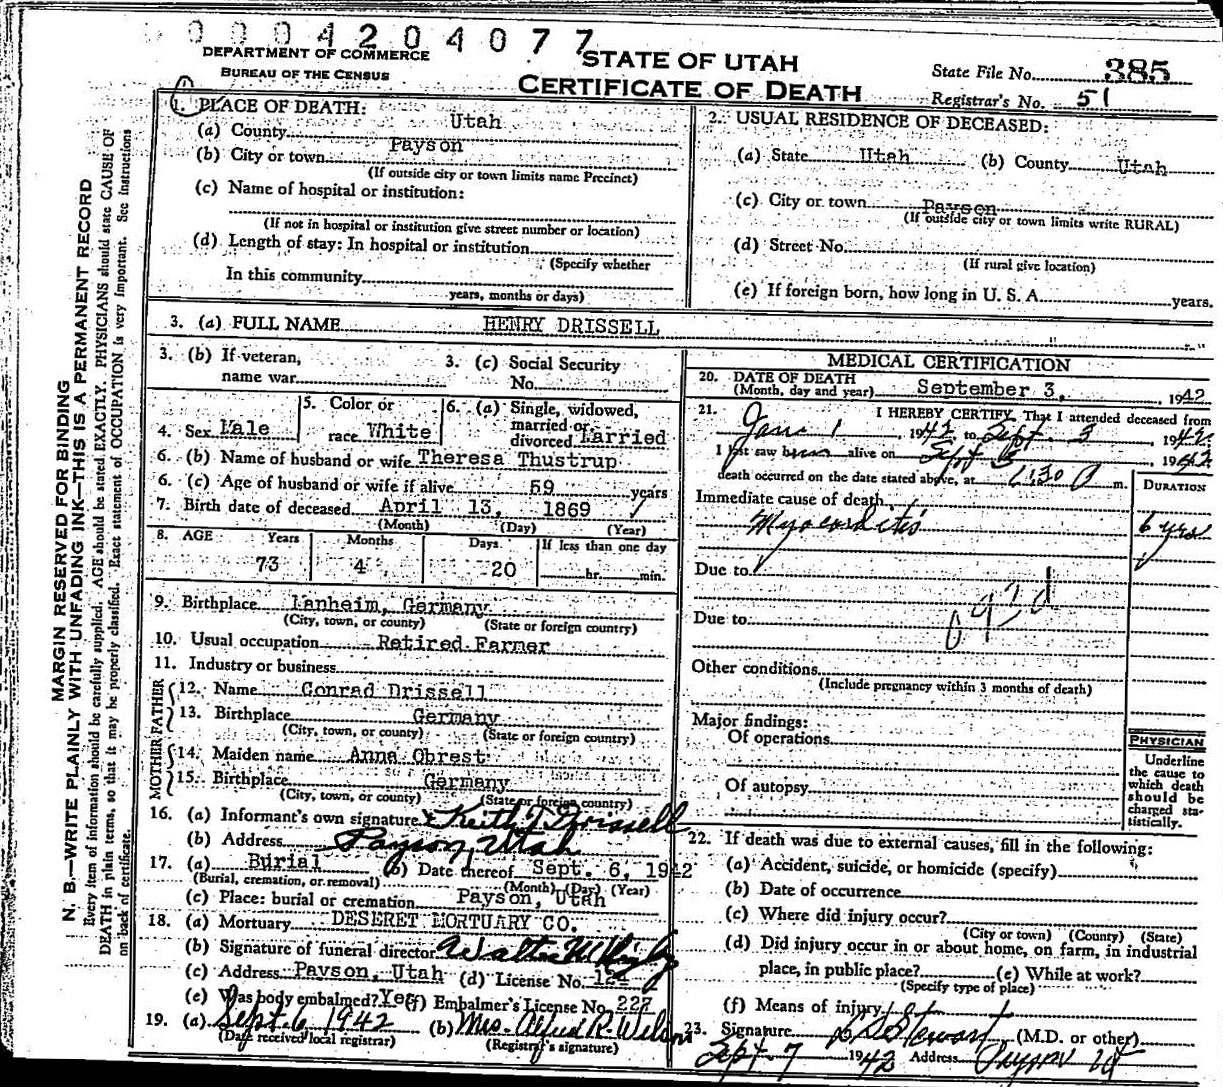 0004204077
DEPARTMENT OF COMMERCE
BUREAU OF THE CENSUS
STATE OF UTAH
CERTIFICATE OF DEATH
State File No. 385
Registrar's No. 51
1. PLACE OF DEATH:
(a) County Utah
(b) City or town Payson
(If outside city or town limits name Precinct)
(c) Name of hospital or institution:
(If not in hospital or institution give street number or location)
(d) Length of stay: In hospital or institution
(Specify whether
In this community
years, months or days)
2. USUAL RESIDENCE OF DECEASED:
(a) State Utah (b) County Utah
(c) City or town Payson
(If outside city or town limits write RURAL)
(d) Street No.
(If rural give location)
(e) If foreign born, how long in U. S. A. years.
3. (a) FULL NAME HENRY DRISSELL
3. (b) If veteran, name war
3. (c) Social Security No.
4. Sex Male
5. Color or race White
6. (a) Single, widowed, married or divorced Married
6. (b) Name of husband or wife Theresa Thustrup
6. (c) Age of husband or wife if alive 59 years
7. Birth date of deceased April 13, 1869
(Month) (Day) (Year)
8. AGE Years Months Days If less than one day
73 4 20 hr. min.
9. Birthplace Lanheim, Germany
(City, town, or county) (State or foreign country)
10. Usual occupation Retired Farmer
11. Industry or business
FATHER
12. Name Conrad Drissell
13. Birthplace Germany
(City, town, or county) (State or foreign country)
MOTHER
14. Maiden name Anna Obrest
15. Birthplace Germany
(City, town, or county) (State or foreign country)
16. (a) Informant's own signature Keith J Drissell
(b) Address Payson, Utah
17. (a) Burial (b) Date thereof Sept. 6, 1942
(Burial, cremation, or removal) (Month) (Day) (Year)
(c) Place: burial or cremation Payson, Utah
18. (a) Mortuary DESERET MORTUARY CO.
(b) Signature of funeral director Walter
(c) Address Payson, Utah (d) License No.
(e) Was body embalmed? Yes (f) Embalmer's License No. 227
19. (a) Sept. 6 1942 (b) Mrs. Alfred R. Wilson
(Date received local registrar) (Registrar's signature)
MEDICAL CERTIFICATION
20. DATE OF DEATH
(Month, day and year) September 3, 1942
21. I HEREBY CERTIFY, That I attended deceased from
Jan 1, 1942, to Sept. 3, 1942
I last saw him alive on Sept 3, 1942
death occurred on the date stated above, at 1:30 P m.
DURATION
Immediate cause of death
Myocarditis 6 yrs
Due to
Due to
Other conditions
(Include pregnancy within 3 months of death)
Major findings:
Of operations
Of autopsy
PHYSICIAN
Underline
the cause to
which death
should be
charged sta-
tistically.
22. If death was due to external causes, fill in the following:
(a) Accident, suicide, or homicide (specify)
(b) Date of occurrence
(c) Where did injury occur?
(City or town) (County) (State)
(d) Did injury occur in or about home, on farm, in industrial
place, in public place? (e) While at work?
(Specify type of place)
(f) Means of injury
23. Signature Stewart (M.D. or other)
Sept 7 1942 Address Payson Ut
MARGIN RESERVED FOR BINDING
N. B.—WRITE PLAINLY WITH UNFADING INK—THIS IS A PERMANENT RECORD
Every item of information should be carefully supplied. AGE should be stated EXACTLY. PHYSICIANS should state CAUSE OF
DEATH in plain terms, so that it may be properly classified. Exact statement of OCCUPATION is very important. See instructions
on back of certificate.